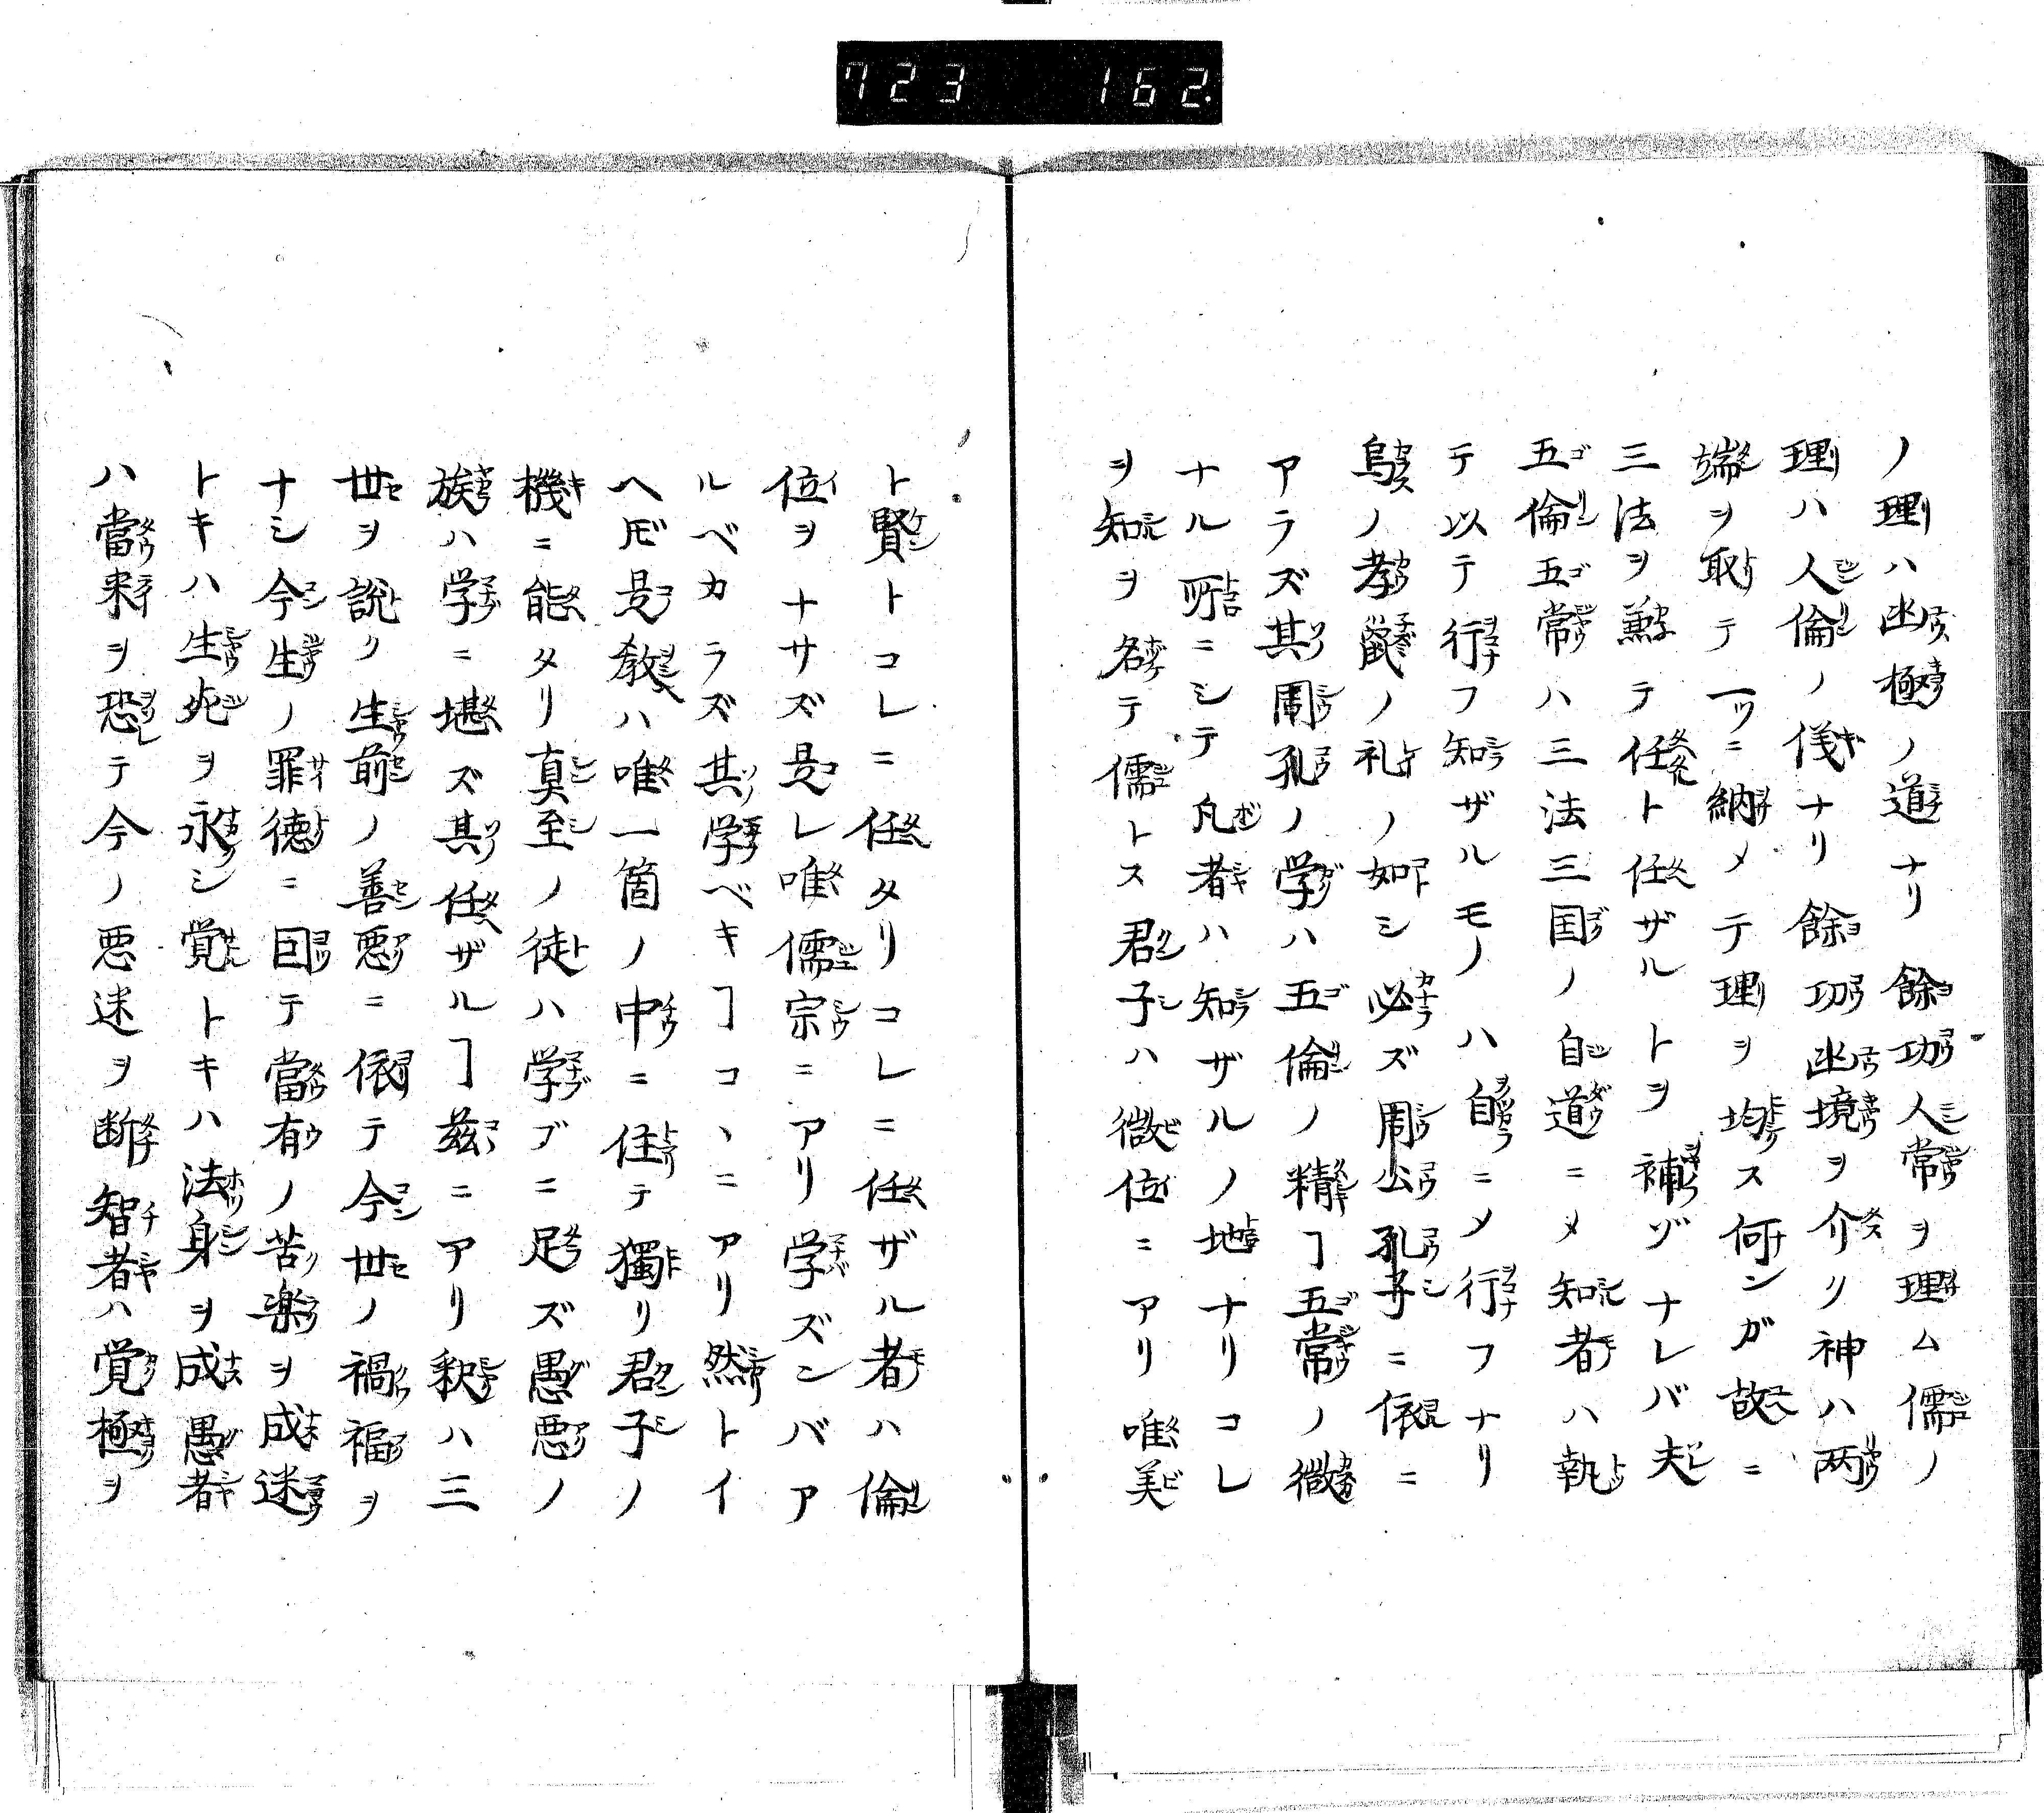 723 162.
ノ理ハ幽極ノ道ナリ餘功人常ヲ理ム儒ノ
理ハ人倫ノ儀ナリ餘功幽境ヲ介リ神ハ両
端ヲ取テ一ツニ納メテ理ヲ均ス何ンガ故ニ
三法ヲ兼テ任ト任ザルトヲ補ヅナレバ夫
五倫五常ハ三法三国ノ自道ニメ知者ハ執
テ以テ行フ知ザルモノハ自ニメ行フナリ
烏ノ孝ノ礼ノ如シ必ズ周公孔子ニ依ニ
アラズ其周孔ノ学ハ五倫ノ精ヿ五常ノ微
ナル所ニシテ凡者ハ知ザルノ地ナリコレ
ヲ知ヲ名テ儒トス君子ハ微位ニアリ唯美
ト賢トコレニ任タリコレニ任ザル者ハ倫
位ヲナサズ是レ唯儒宗ニアリ学ズンバア
ルベカラズ其学ベキヿコヽニアリ然トイ
ヘ𪜈是教ハ唯一箇ノ中ニ住テ獨リ君子ノ
機ニ能タリ真至ノ徒ハ学ブニ足ズ愚悪ノ
族ハ学ニ堪ズ其任ザルヿ茲ニアリ釈ハ三
世ヲ説ク生前ノ善悪ニ依テ今世ノ禍福ヲ
ナシ今生ノ罪徳ニ因テ當有ノ苦楽ヲ成迷
トキハ生死ヲ永シ覚トキハ法身ヲ成愚者
ハ當来ヲ恐テ今ノ悪迷ヲ断智者ハ覚極ヲ